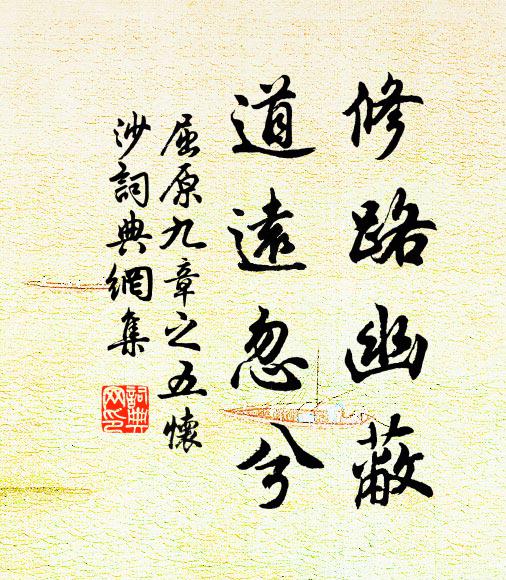 修路幽蔽
道遠忽兮
屈原九章之五懷
沙詞典網集
詞典
网印